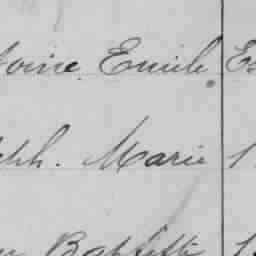 toine Emile Es
eph. Marie 1
Baptiste 1